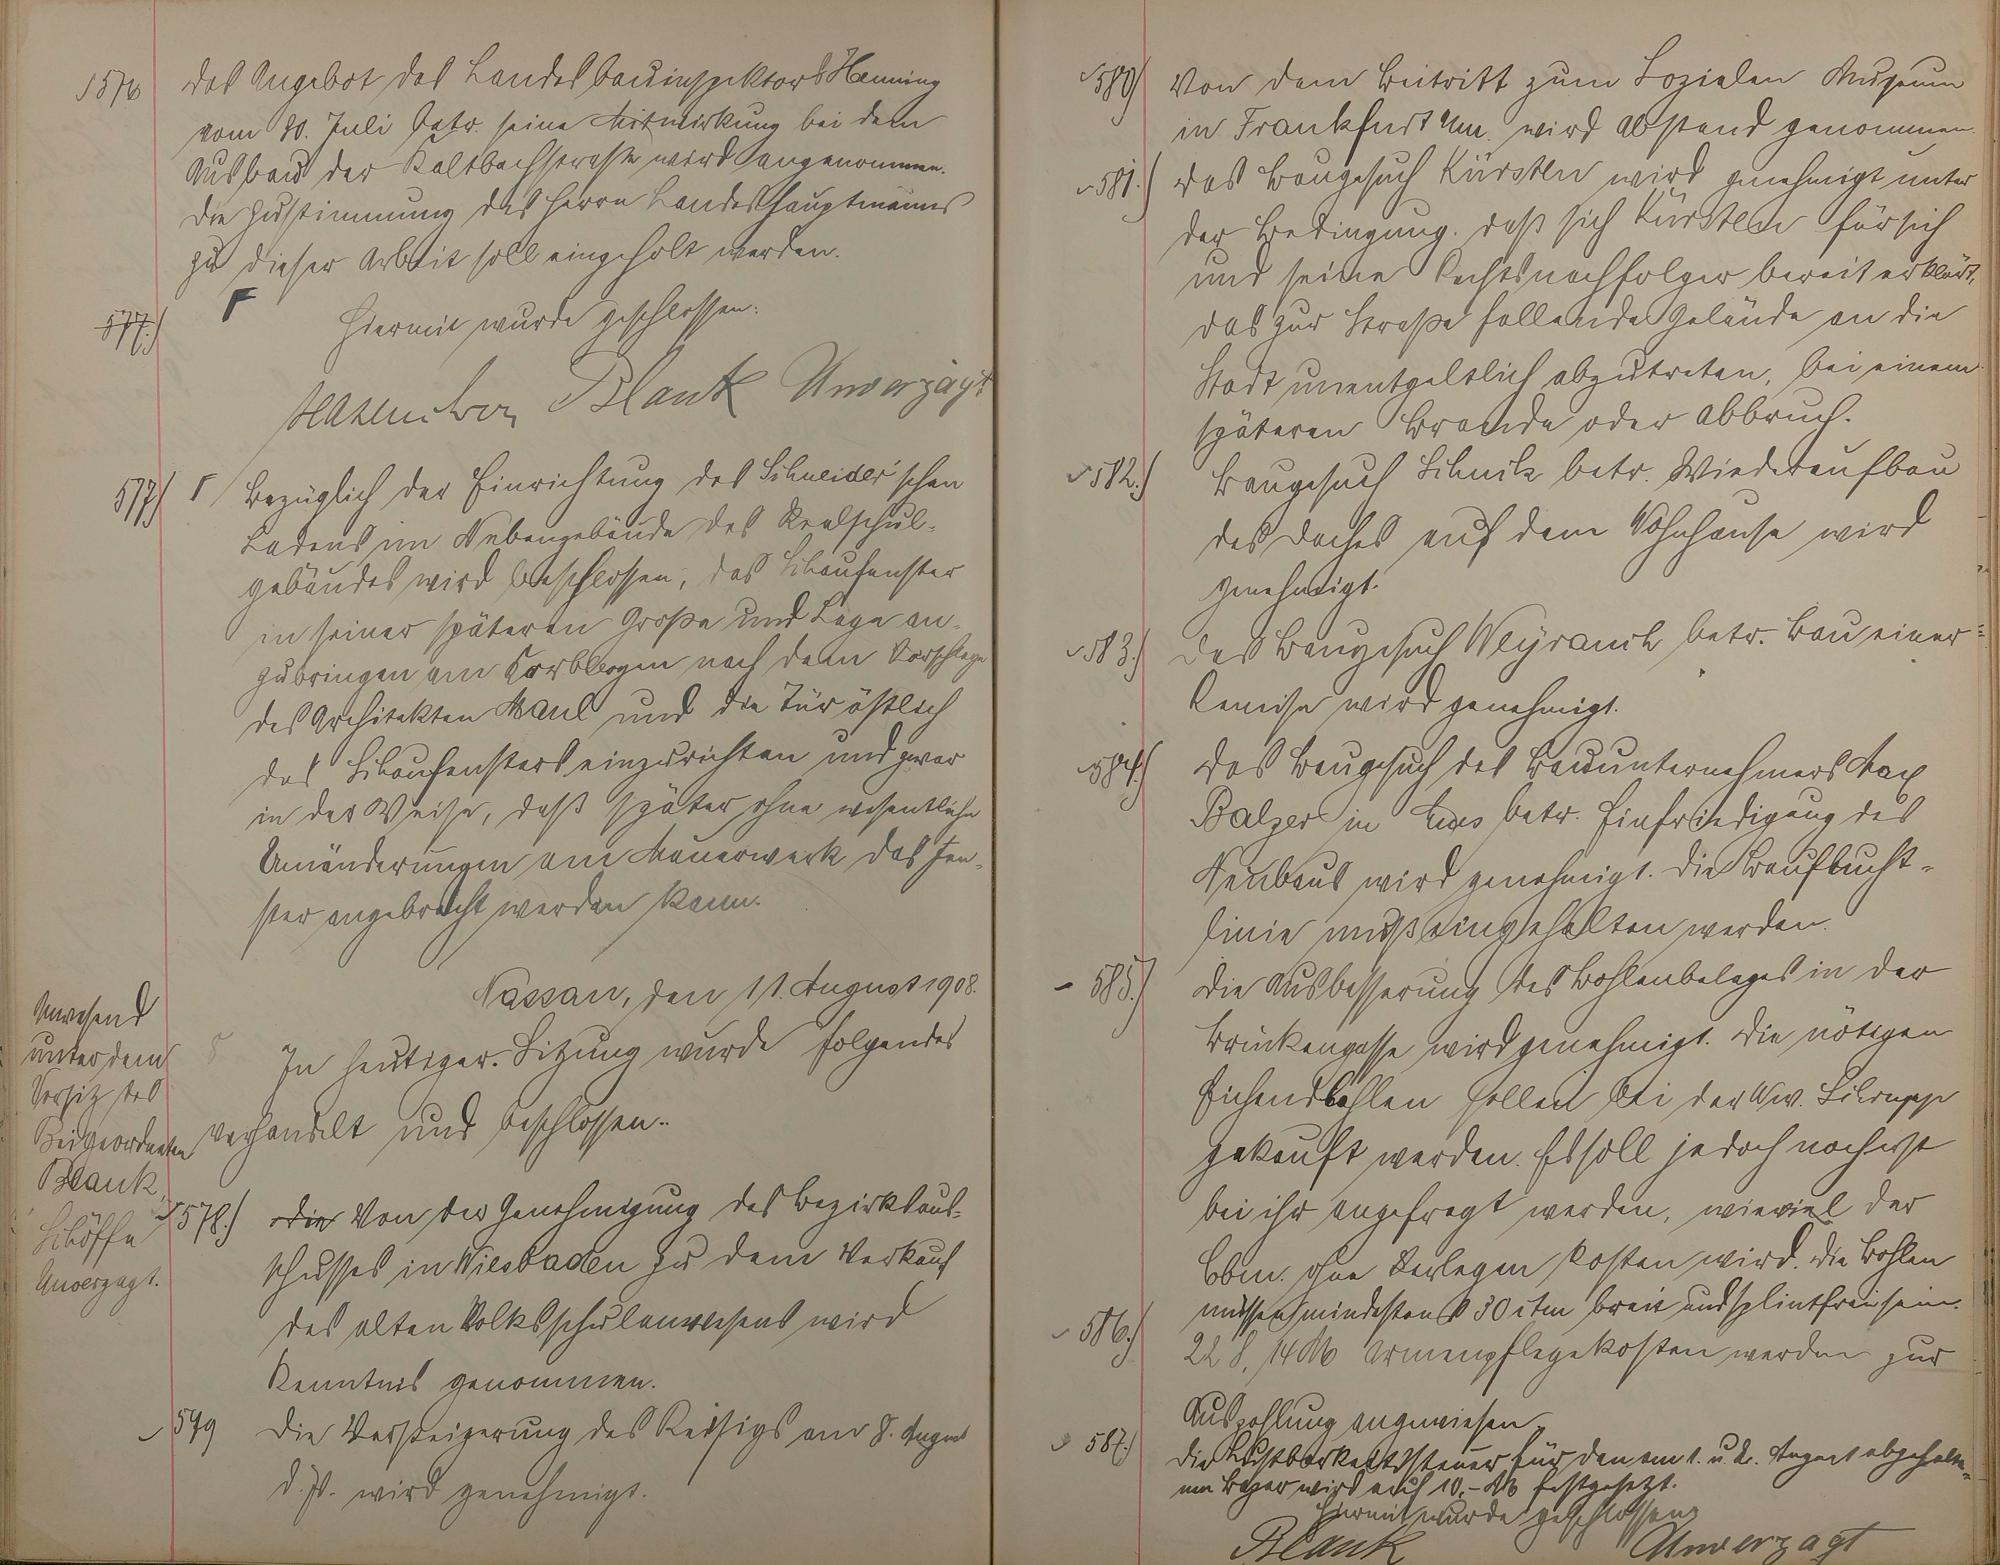 576 Das Angebot des Landesbauinspektors Henning
vom 30. Juli betr. seine Mitwirkung bei dem
Ausbau der Kaltbachstrasse wird angenommen.
Die Zustimmung des Herrn Landeshauptmanns
zu dieser Arbeit soll eingeholt werden.
577.) Γ
Hiermit wurde geschlossen:
Blank Unverzagt
577) Γ Bezüglich der Einrichtung des Schneider'schen
Ladens im Nebengebäude des Realschul-
gebäudes wird beschlossen, das Schaufenster
in seiner späteren Große und Lage an-
zubringen am Korbbogen nach dem Vorschlage
des Architekten Maul und die Tür östlich
des Schaufensters einzurichten und zwar
in der Weise, daß später ohne wesentliche
Umänderungen am Mauerwerk das Fen-
ster angebracht werden kann.
Nassau, den 11. August 1908.
Anwesend
unter dem
Vorsitz des
Beigeordneten
Blank,
Schöffe
Unverzagt.
In heutiger Sitzung wurde folgendes
verhandelt und beschlossen:
578.) die Von der Genehmigung des Bezirksaus-
schusses in Wiesbaden zu dem Verkauf
des alten Volksschulanwesens wird
Kenntnis genommen.
579 Die Versteigerung des Reisigs am 8. August
d. Js. wird genehmigt.
580) Von dem Beitritt zum Sozialen Museum
in Frankfurt a/m. wird Abstand genommen.
581.) Das Baugesuch Kürsten wird genehmigt unter
der Bedingung, daß sich Kürsten für sich
und seine Rechtsnachfolger bereit erklärt,
das zur Straße fallende Gelände an die
Stadt unentgeltlich abzutreten, bei einem
späteren Brande oder Abbruch.
582.) Baugesuch Schnik betr. Wiederaufbau
des Daches auf dem Wohnhause wird
genehmigt.
583.) Das Baugesuch Weyrauch betr. Bau einer
Remise wird genehmigt.
584.) Das Baugesuch des Bauunternehmers Max
Balzer in Ems betr. Einfriedigung des
Neubaus wird genehmigt. Die Bauflucht-
linie muß eingehalten werden.
585.) Die Ausbesserung des Bohlenbelages in der
Brückengasse wird genehmigt. Die nötigen
Eichenbohlen sollen bei der Ww. Schrupp
gekauft werden. Es soll jedoch noch erst
bei ihr angefragt werden, wieviel der
Cbm. ohne Verlegen kosten wird. Die Bohlen
müssen mindestens 30 ctm breit und splintfrei sein.
586.) 228,14 M Armenpflegekosten werden zur
Auszahlung angewiesen.
587.) Die Lustbarkeitssteuer für den am 1. u. 2. August abgehalte-
nen Bazar wird auf 10,- M festgesetzt.
Hiermit wurde geschlossen
Blank Unverzagt